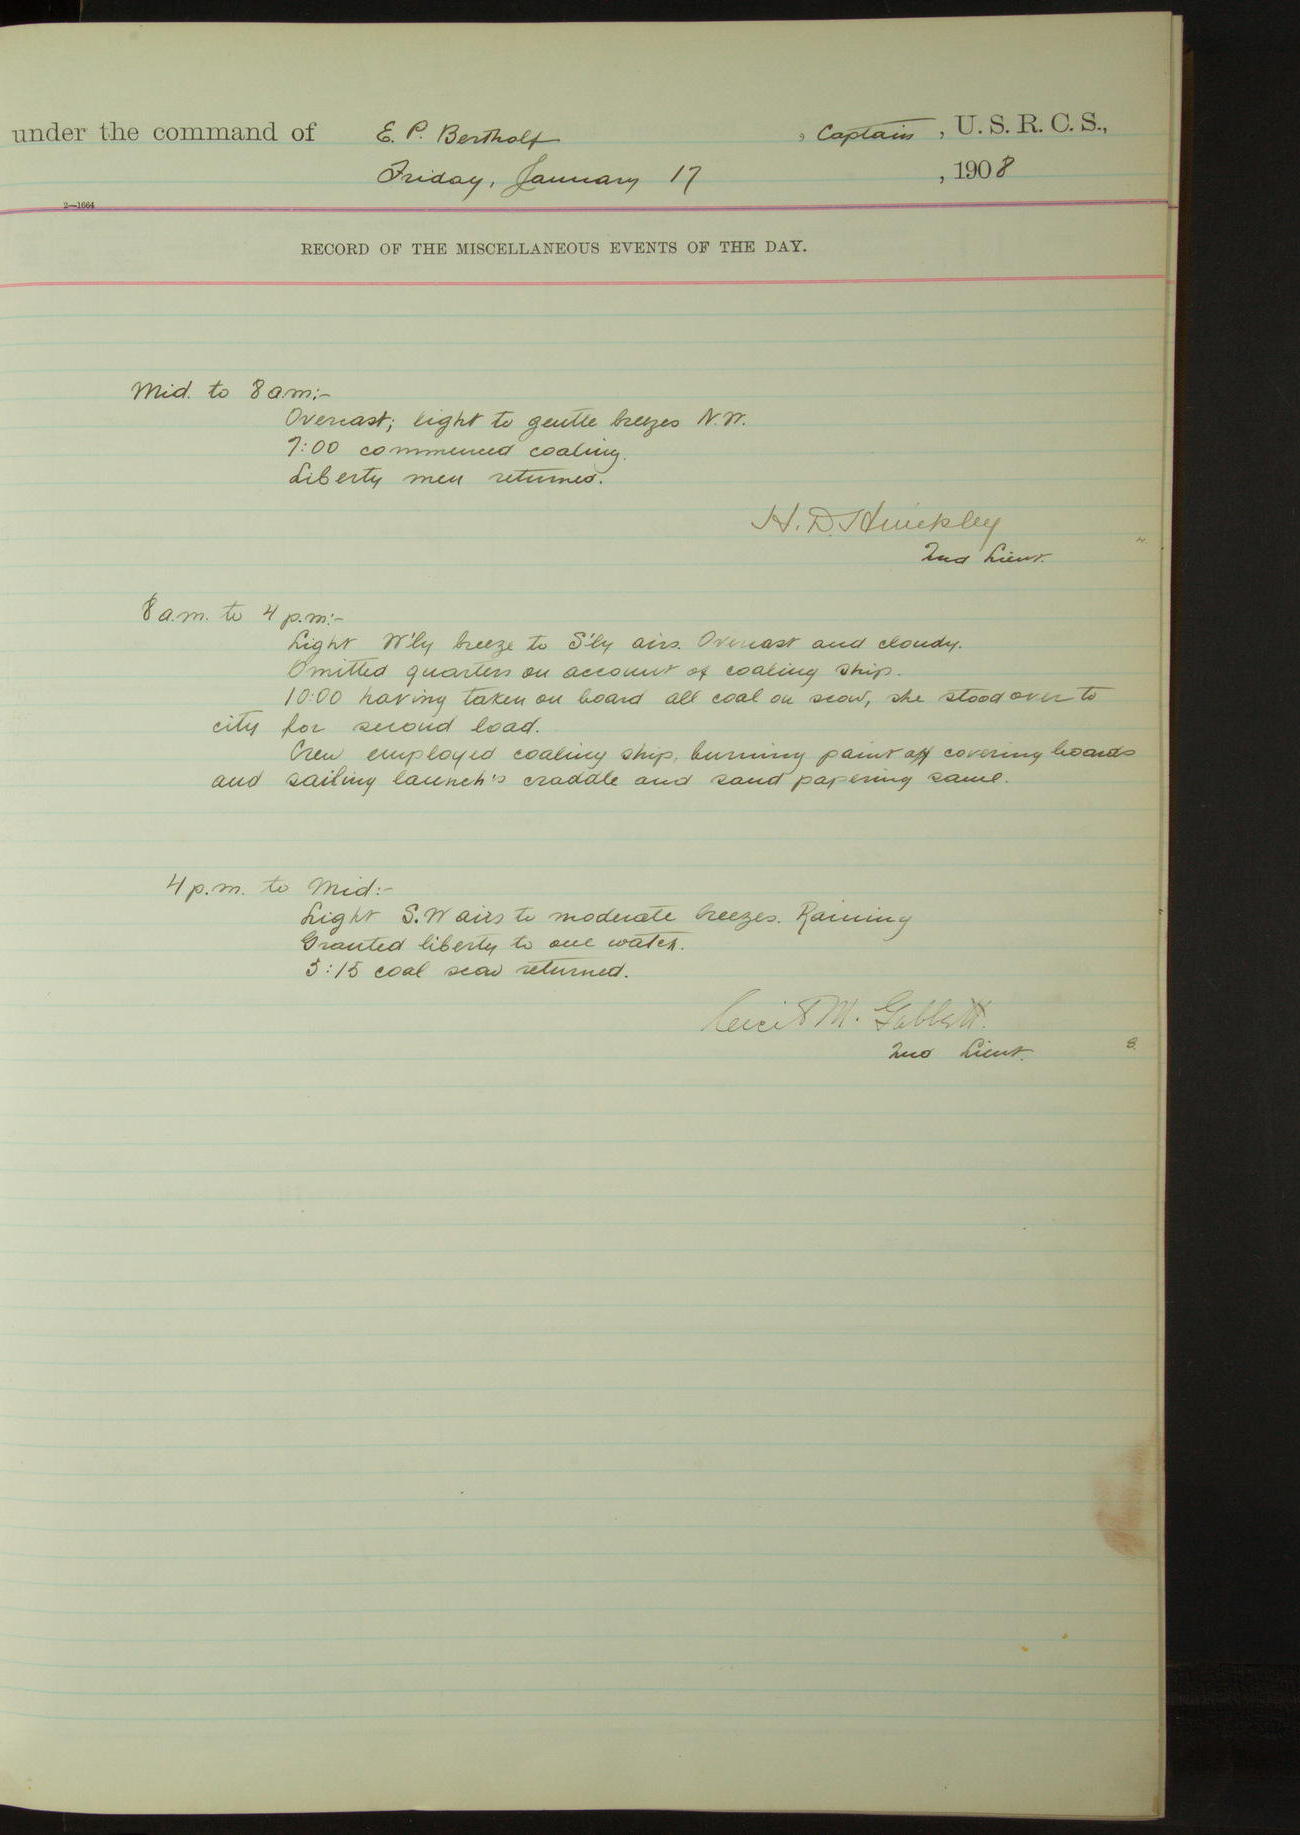 under the command of E. P. Bertholf, Captain, U. S. R. C. S.,
Friday, January 17, 1908
2—1664
RECORD OF THE MISCELLANEOUS EVENTS OF THE DAY.
Mid. to 8 a.m:-
Overcast; light to gentle breezes N.W.
7:00 commenced coaling.
Liberty men returned.
H. D. Hinckley
2nd Lieut.
8 a.m. to 4 p.m:-
Light W'ly breeze to S'ly airs. Overcast and cloudy.
Omitted quarters on account of coaling ship.
10:00 having taken on board all coal on scow, she stood over to
city for second load.
Crew employed coaling ship, burning paint off covering boards
and sailing launch's craddle and sand papering same.
4 p.m. to Mid:-
Light S.W airs to moderate breezes. Raining
Granted liberty to one watch.
5:15 coal scow returned.
M. Gabbett.
2nd Lieut.